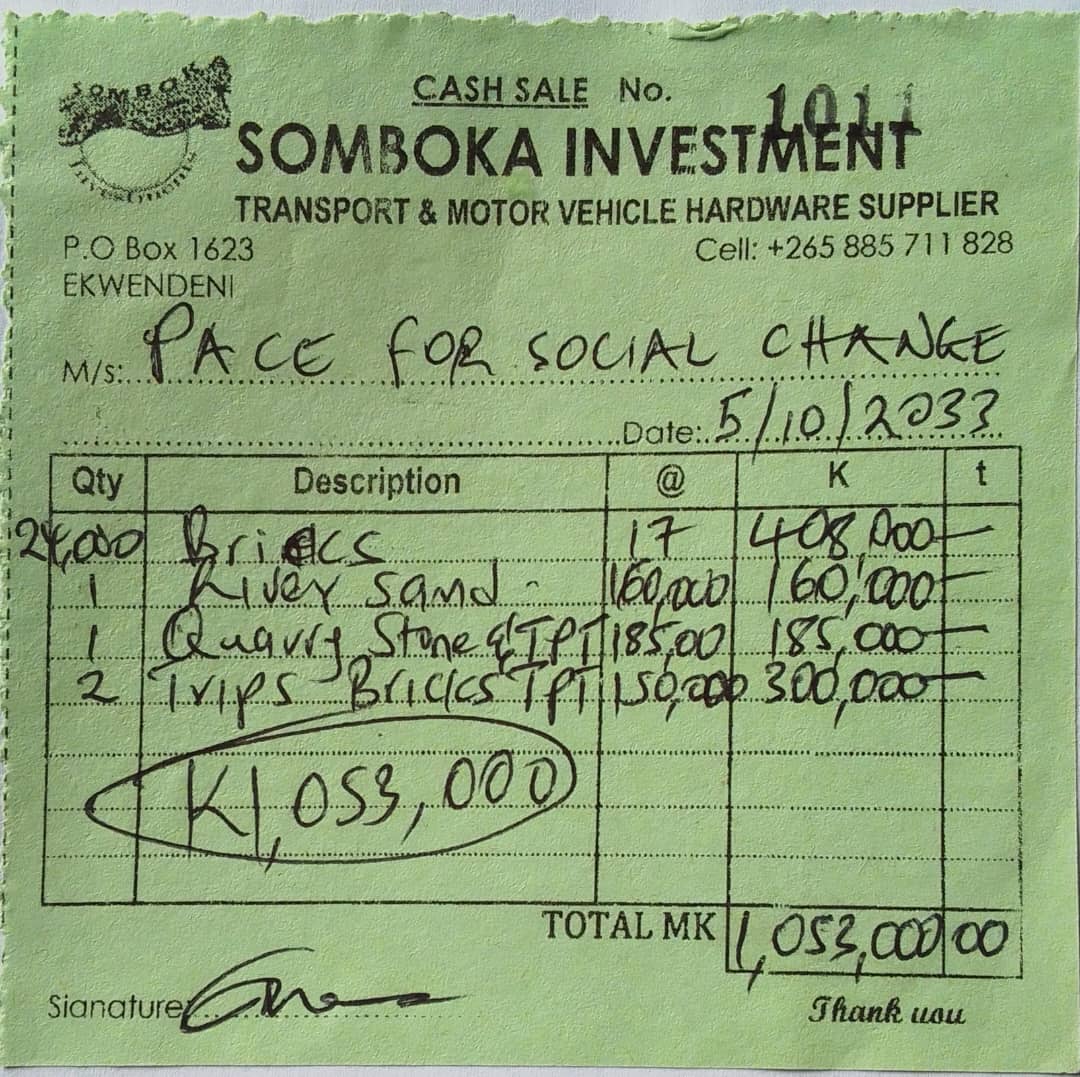 SOMBOKA
INVESTMENTS
CASH SALE No. 1011
SOMBOKA INVESTMENT
TRANSPORT & MOTOR VEHICLE HARDWARE SUPPLIER
P.O Box 1623 Cell: +265 885 711 828
EKWENDENI
M/s: PACE FOR SOCIAL CHANGE
Date: 5/10/2033
Qty Description @ K t
24,000 Bricks 17 408,000 —
1 River sand - 160,000 160,000 —
1 Quarry Stone & TPT 185,00 185,000 —
2 Trips Bricks TPT 150,000 300,000 —
K1,053,000
TOTAL MK 1,053,000 00
Sianature:
Thank uou